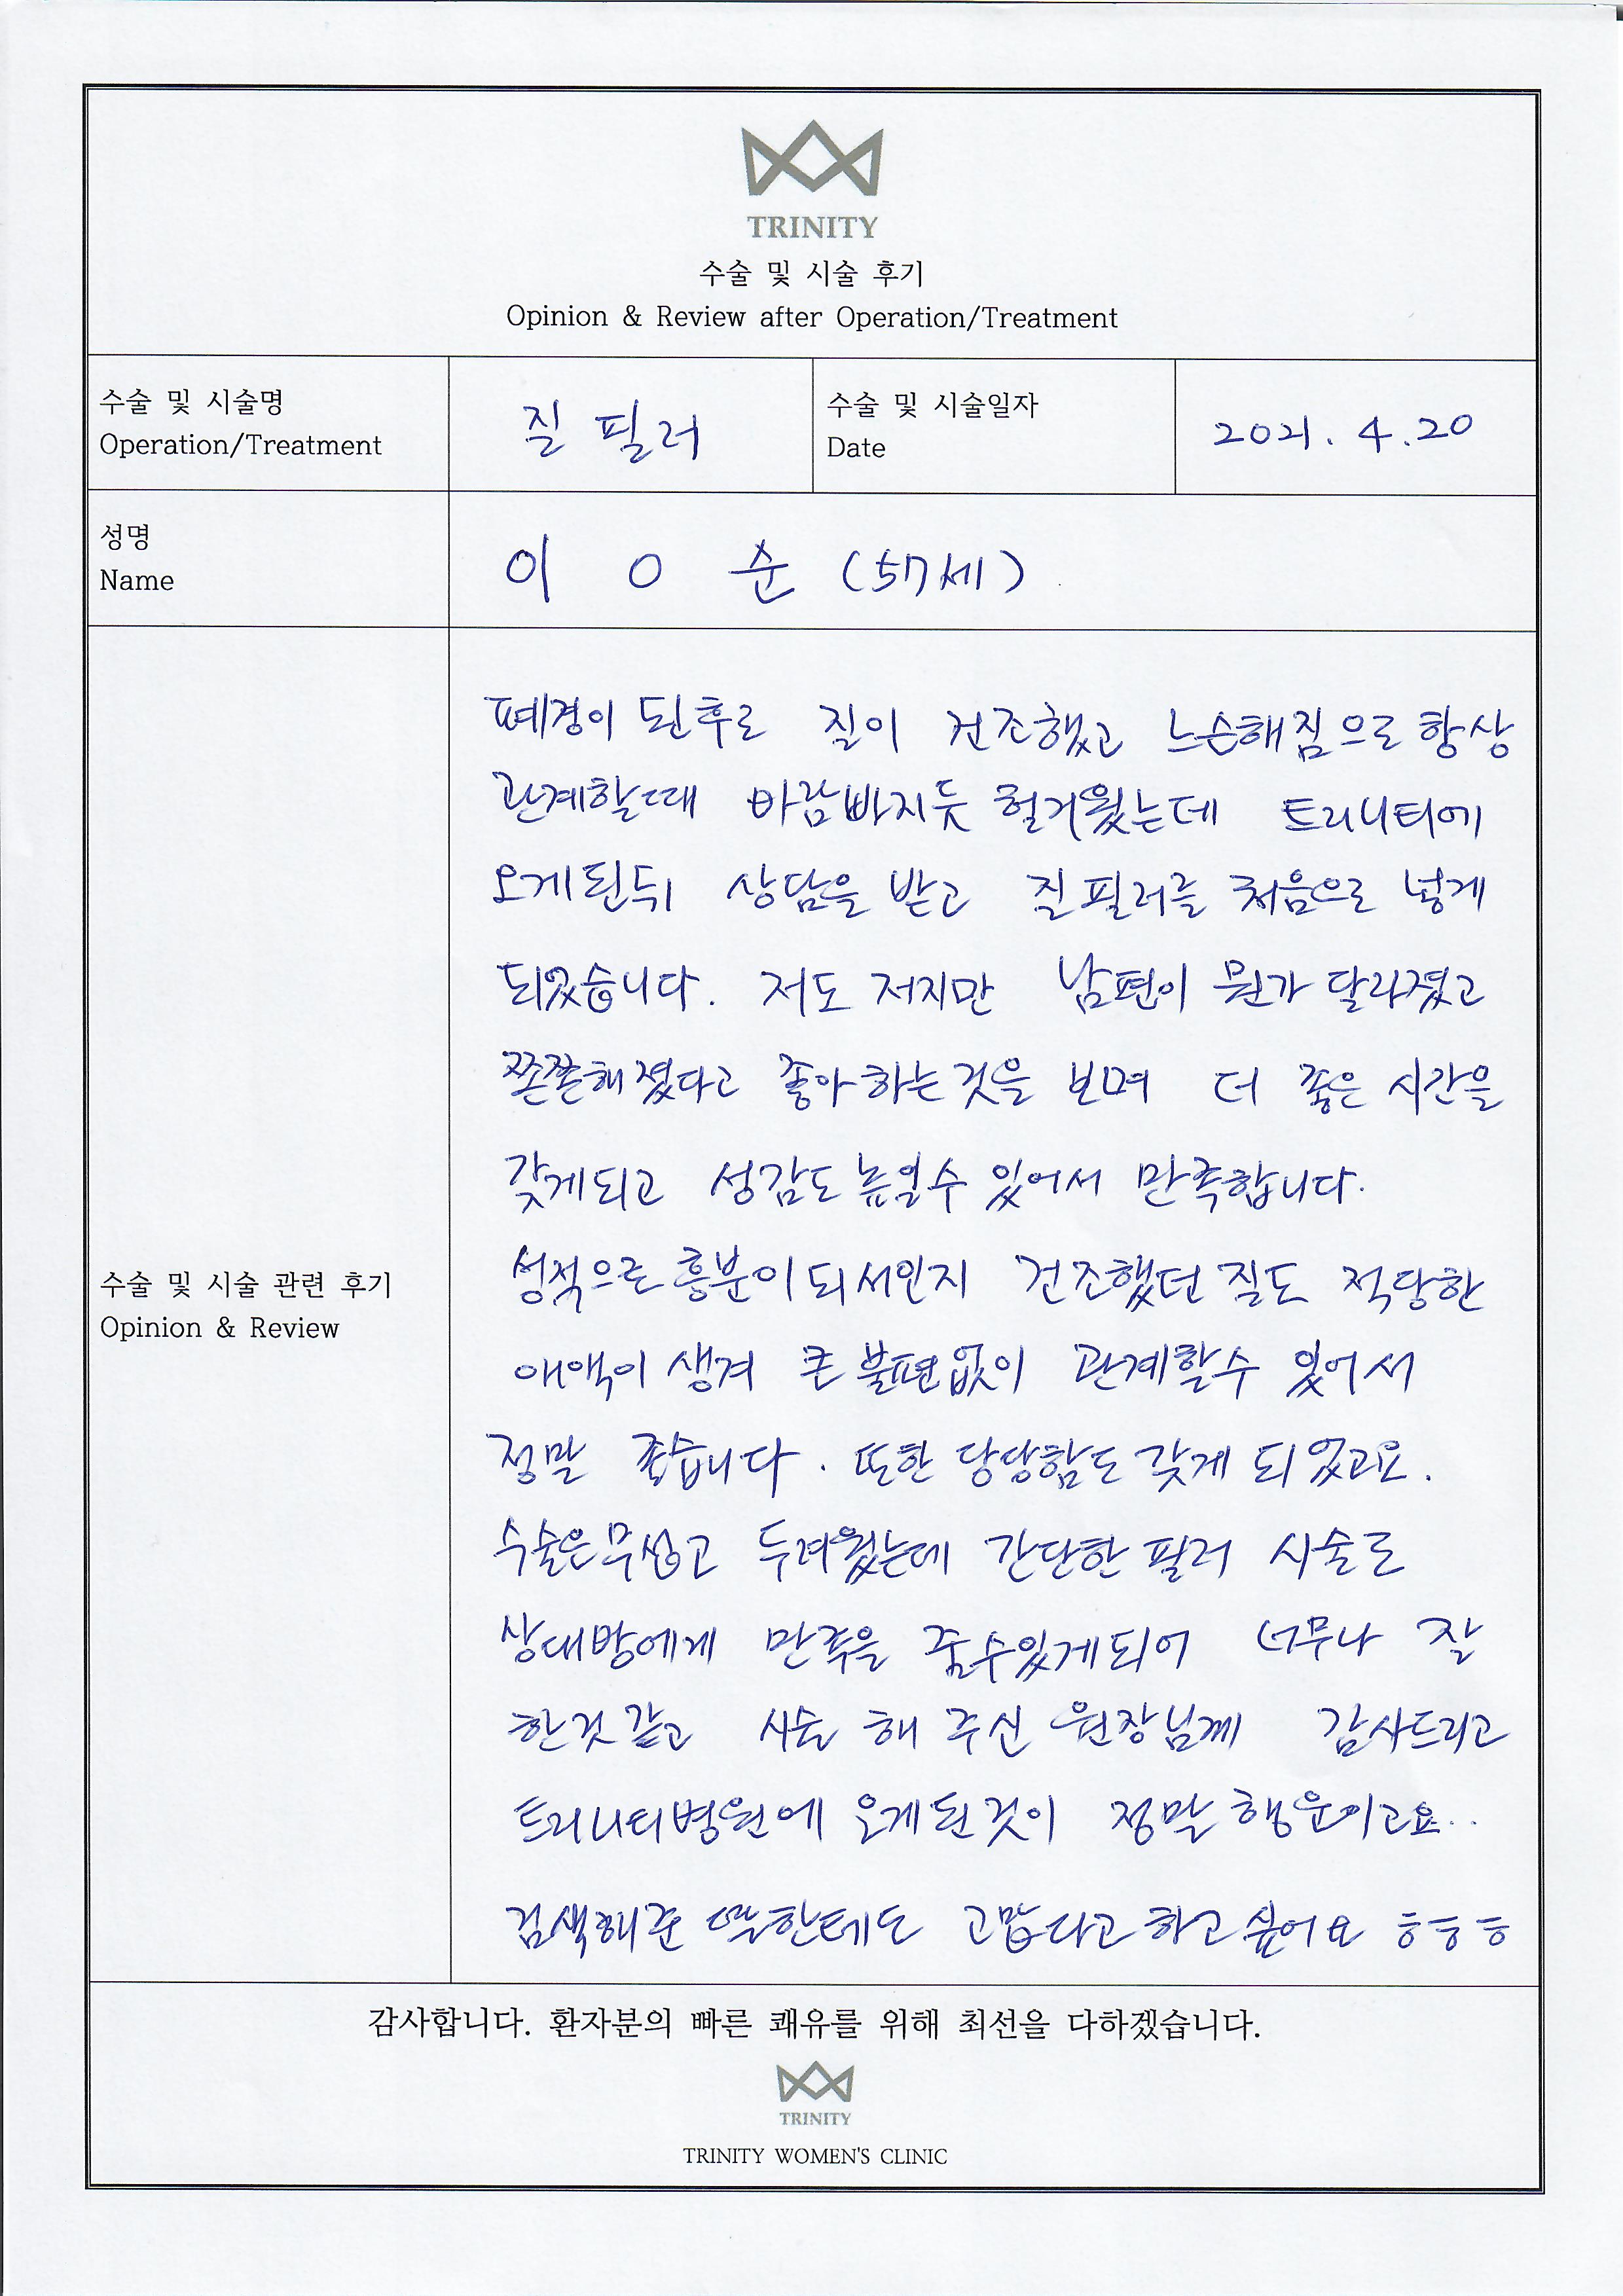 TRINITY
수술 및 시술 후기
Opinion & Review after Operation/Treatment
수술 및 시술명
Operation/Treatment
질 필러
수술 및 시술일자
Date
2021. 4. 20
성명
Name
이 O 순 (57세)
수술 및 시술 관련 후기
Opinion & Review
폐경이 된후로 질이 건조했고 느슨해짐으로 항상
관계할때 바람빠지듯 헐거웠는데 트리니티에
오게된뒤 상담을 받고 질필러를 처음으로 넣게
되었습니다. 저도 저지만 남편이 뭔가 달라졌고
쫀쫀해졌다고 좋아하는것을 보며 더 좋은 시간을
갖게되고 성감도 높일수 있어서 만족합니다.
성적으로 흥분이 되서인지 건조했던 질도 적당한
애액이 생겨 큰 불편없이 관계할수 있어서
정말 좋습니다. 또한 당당함도 갖게 되었고요.
수술은 무섭고 두려웠는데 간단한 필러 시술로
상대방에게 만족을 줄수있게되어 너무나 잘
한것 같고 시술 해 주신 원장님께 감사드리고
트리니티병원에 오게된것이 정말 행운이고요..
검색해준 딸한테도 고맙다고 하고싶어요 ㅎㅎㅎ
감사합니다. 환자분의 빠른 쾌유를 위해 최선을 다하겠습니다.
TRINITY
TRINITY WOMEN'S CLINIC